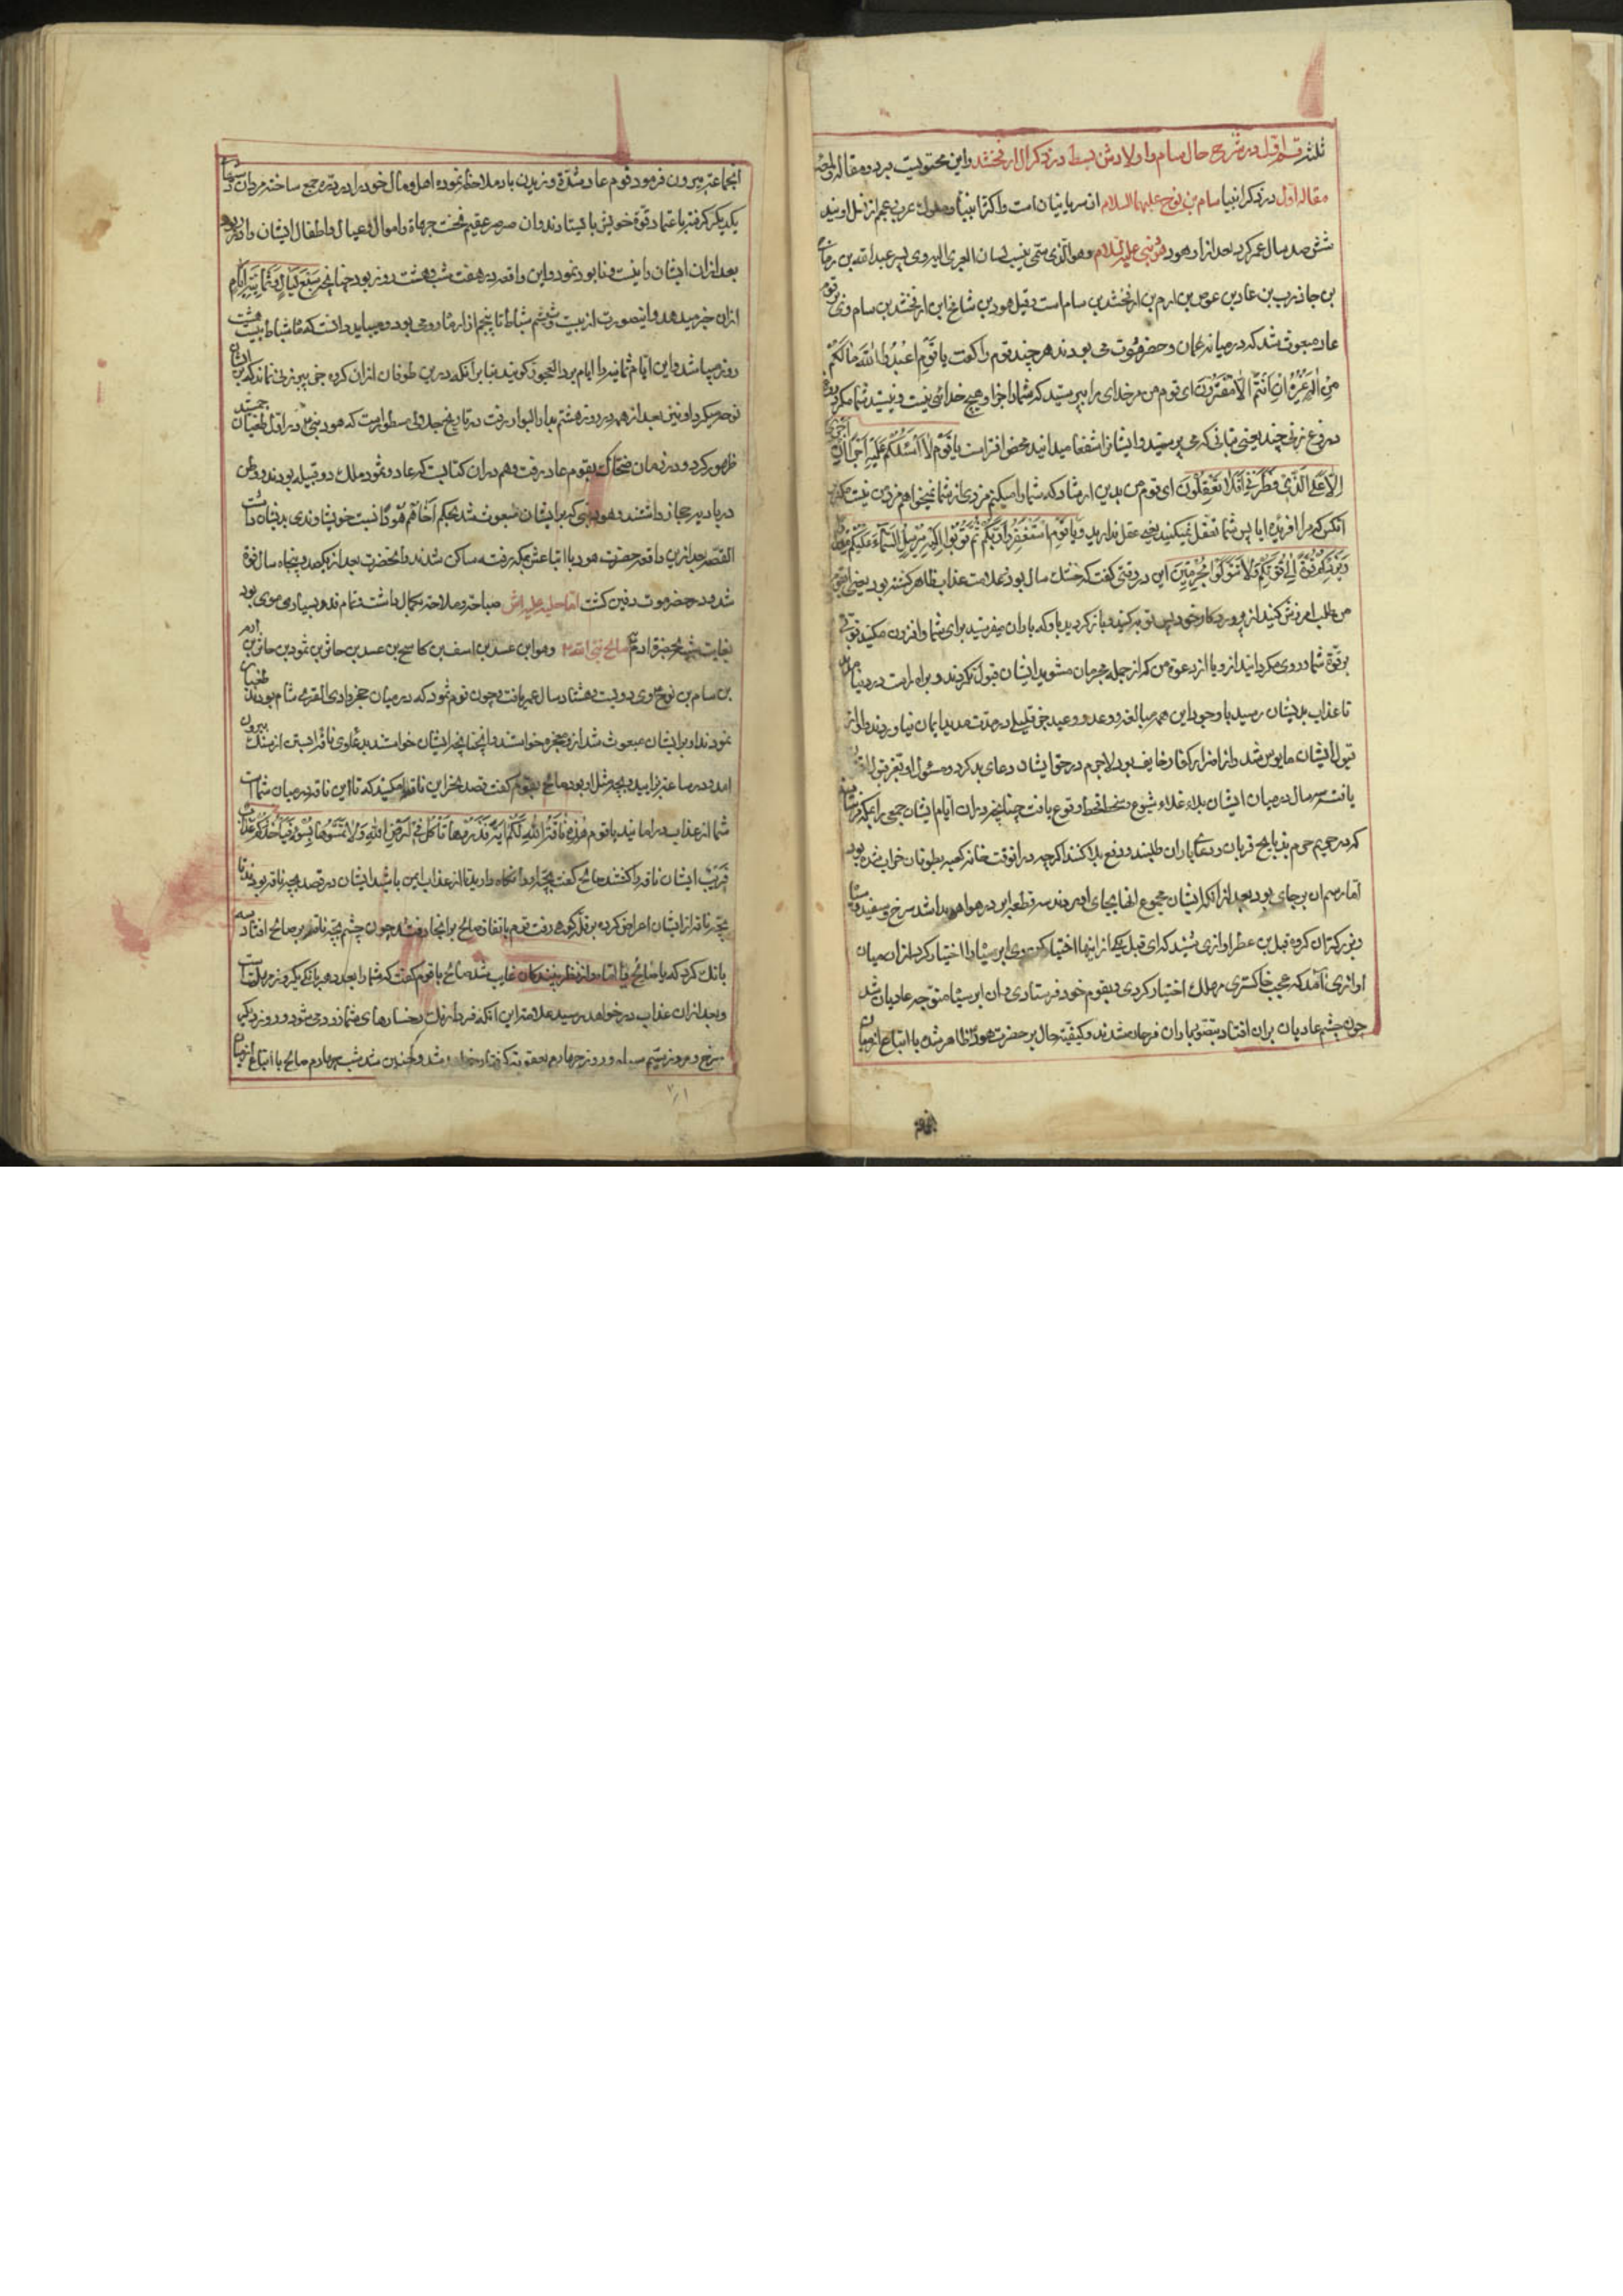 ثلثه قسم اول در شرح حال سام و اولادش بسط در ذکر ال ارفخشد و این محتویست بر دو مقاله
مقاله اول در ذکر انبیا سام بن نوح علیهما السلام از سریانیان است و اکثر انبیا و ملوک عرب و عجم از نسل اویند
شش صد سال عمر کرد بعد از او هود نبی علیه السلام وهو الذی سمی بنسب لسان العبری الیه وی پسر عبدالله بن رباح
بن جاذرب بن عاد بن عوص بن ارم بن ارفخشد بن سام است و قیل هود بن شالخ ابن ارفخشد بن سام وی بر قوم
عاد مبعوث شد که در میانه عمان و حضرموت می بودند هر چند قوم را گفت یا قوم اعبدوا الله ما لکم
من اله غیره ان انتم الا مفترون ای قوم من مر خدای را بپرستید که شما را جز او هیچ خدائی نیست و نیستید شما مگر
دروغ زنی چند یعنی بتانی که می پرستید و ایشانرا شفعا میدانید محض افتراست یا قوم لا اسئلکم علیه اجرا ان اجری
الا علی الذی فطرنی افلا تعقلون ای قوم من بدین ارشاد که شما را میکنم مزدی از شما نمیخواهم مزد من نیست مگر بر
انکس که مرا افریده ایا پس شما تعقل نمیکنید یعنی عقل ندارید و یا قوم استغفروا ربکم ثم توبوا الیه یرسل السماء علیکم مدرارا
ویزدکم قوة الی قوتکم ولا تتولوا مجرمین این در وقتی گفت که خشک سال بود و علامت عذاب ظاهر گشته بود یعنی ای قوم
من طلب امرزش کنید از پروردگار خود پس توبه کنید و باز گردید باو که باران میفرستد برای شما و افزون میکند قوتی
بر قوة شما و روی مگردانید از او یا از دعوة من که از جمله مجرمان مشوید ایشان قبول نکردند و براه راست در نیامدند
تا عذاب بدیشان رسید با وجود این همه مبالغه و وعد و وعید جز قلیلی در مدت مدید ایمان نیاوردند و او از
قبول ایشان مایوس شد و از اضرار کفار خایف بود لاجرم در حق ایشان دعای بد کرد و مسئول او بعز قبول اقتران
یافت سه سال در میان ایشان بلاء غلاء شیوع و سخط قحط وقوع یافت چنانچه در ان ایام ایشان جمعی را بمکه فرستادند
که در حریم حرم بذبایح قربان و دعا باران طلبند و دفع بلا کنند اگرچه در انوقت خانه کعبه بطوفان خراب شده بود
اما رسم ان بر جای بود بعد از انکه ایشان مجموع انها بجای اوردند سه قطعه ابر در هوا هویدا شد سرخ و سفید و سیاه
و بزرکتر ان کروه قیل بن عطر اوازی شنید که ای قیل یکی از اینها اختیار کن وی ابر سیاه را اختیار کرد از ان میان
اوازی آمد که عجب خاکستری مهلک اختیار کردی و بقوم خود فرستادی و ان ابر سیاه متوجه عادیان شد
چون چشم عادیان بر ان افتاد بتصور باران فرحان شدند و کیفیة حال بر حضرت هود ظاهر شده با اتباع از میان
انجماعت بیرون فرمود قوم عاد شدة وزیدن باد ملاحظه نموده اهل و مال خود را در دره جمع ساخته مردان دستهای
یکدیگر گرفته باعتماد قوة خویش بایستادند و ان صرصر عقیم نخست جهاة و اموال و عیال و اطفال ایشان را در ربود
بعد از ان ایشان را نیست و نابود نمود و این واقعه در هفت شب و هشت روز بود چنانچه سبع لیال و ثمانیة ایام
ازان خبر میدهد و اینصورت از بیست و ششم شباط تا پنجم از اذار ماه رومی بود و بباید دانست که ماه شباط بیست و هشت
روز میباشد و این ایام ثمانیه را ایام برد العجوز گویند بنا بر انکه در ین طوفان ازان گروه جز پیر زنی نماند که بر ایشان
نوحه میکرد و او نیز بعد از همه در روز هشتم بدار البوار رفت در تاریخ مجدول مسطور است که هود نبی ع در اول طغیان جمشید
ظهور کرد و در زمان ضحاک بقوم عاد رفت و هم در ان کتابیست که عاد و ثمود ملک دو قبیله بودند و وطن
در بادیه حجاز داشتند و هود نبی که بر ایشان مبعوث شد بحکم اخاهم هودا نسبت خویشاوندی بدیشان داشت
القصه بعد ازین واقعه حضرت هود با اتباعش بمکه رفته ساکن شدند و انحضرت بعد از یکصد و پنجاه سال فوة
شد و در حضرموت دفین گشت اما حلیه علیه اش صباحة و ملاحة بکمال داشت تمام قد و بسیار موی بود
بغایت شبیه بحضرة ادم ع صالح نبی الله ع وهو ابن عسد بن اسف بن کاسح بن عسد بن حاثر بن ثمود بن حاثر بن ارم
بن سام بن نوح ع وی دویست و هشتاد سال عمر یافت و چون قوم ثمود که در میان حجر وادی القری شام بودند طغیان
نمودند او بر ایشان مبعوث شد از و معجزه خواستند و انچنانچه ایشان خواستند بدعاء وی ناقه ابستن از سنگ بیرون
امد و در ساعت بزایید و بچه مثل او بود صالح بقوم گفت قصد نحر این ناقه مکنید که تا این ناقه در میان شما است
شما از عذاب در امانید یا قوم هذه ناقة الله لکم ایة فذروها تاکل فی ارض الله ولا تمسوها بسوء فیاخذکم عذاب
قریب ایشان ناقه را کشتند صالح گفت بچه او را نگاه دارید تا از عذاب ایمن باشید ایشان در قصد بچه ناقه بودند تا
بچه ناقه از ایشان اعراض کرده بر قله کوهی رفت قوم باتفاق صالح بر انجا رفتند چون چشم بچه ناقه بر صالح افتاد سه
بانک کرد که یا صالح وا اماه و از نظر بینندگان غایب شد صالح با قوم گفت که شما را بعدد هر بانگی یکروز مهلت است
و بعد ازان عذاب در خواهد رسید علامة این انکه فردا رنک رخسارهای شما زرد می شود و روز دیگر
سرخ و روز سیم سیاه و روز چهارم بعقوبت گرفتار خواهید شد و همچنین شد شب چهارم صالح با اتباع از میان